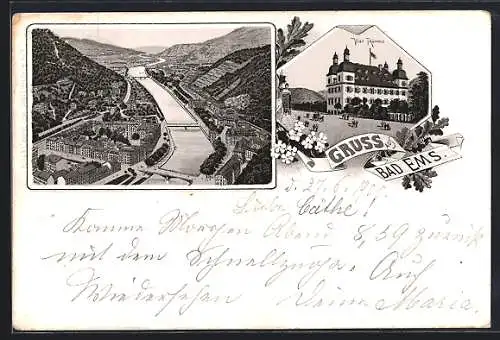 Vier Thürme
GRUSS
AUS
BAD EMS.
d. 27.6.
Liebe Cäthe!
Komme Morgen Abend 8,59 zurück
mit dem Schnellzuge. Auf
Wiedersehen Deine Maria.